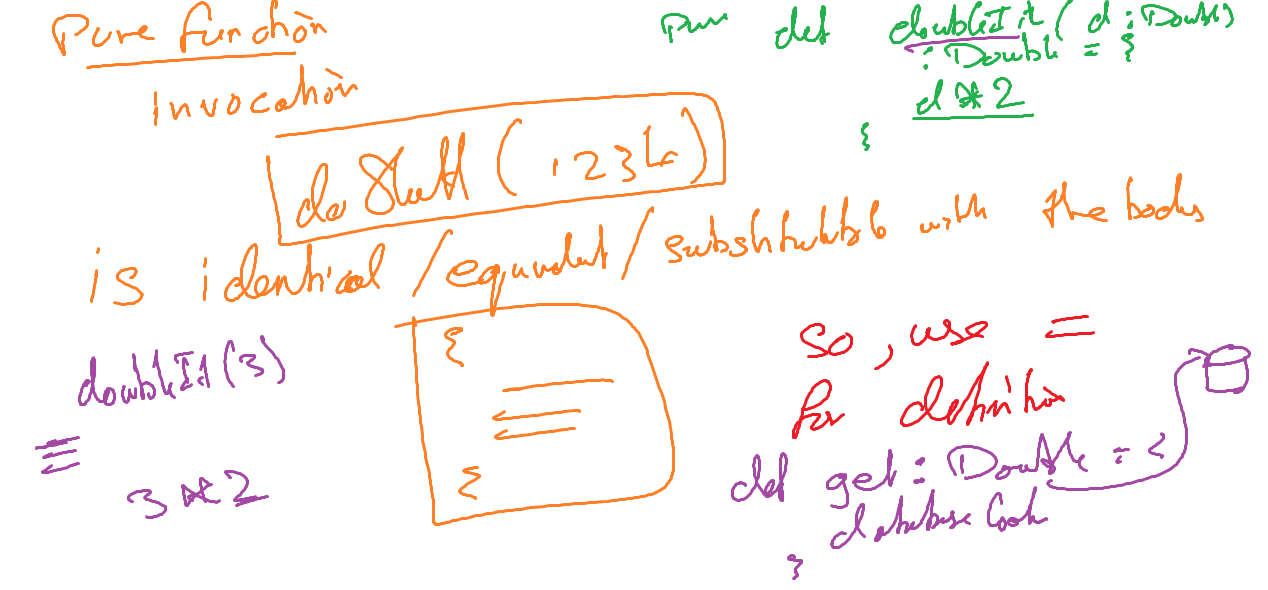 Pure function
Invocation
doStuff(1234)
is identical/equivalent/substitutable with the body
{
}
doubleIt(3)
≡
3 * 2
Pure def doubleIt(d:Double)
:Double = {
d * 2
}
So, use =
for definition
def get: Double = {
database look
}